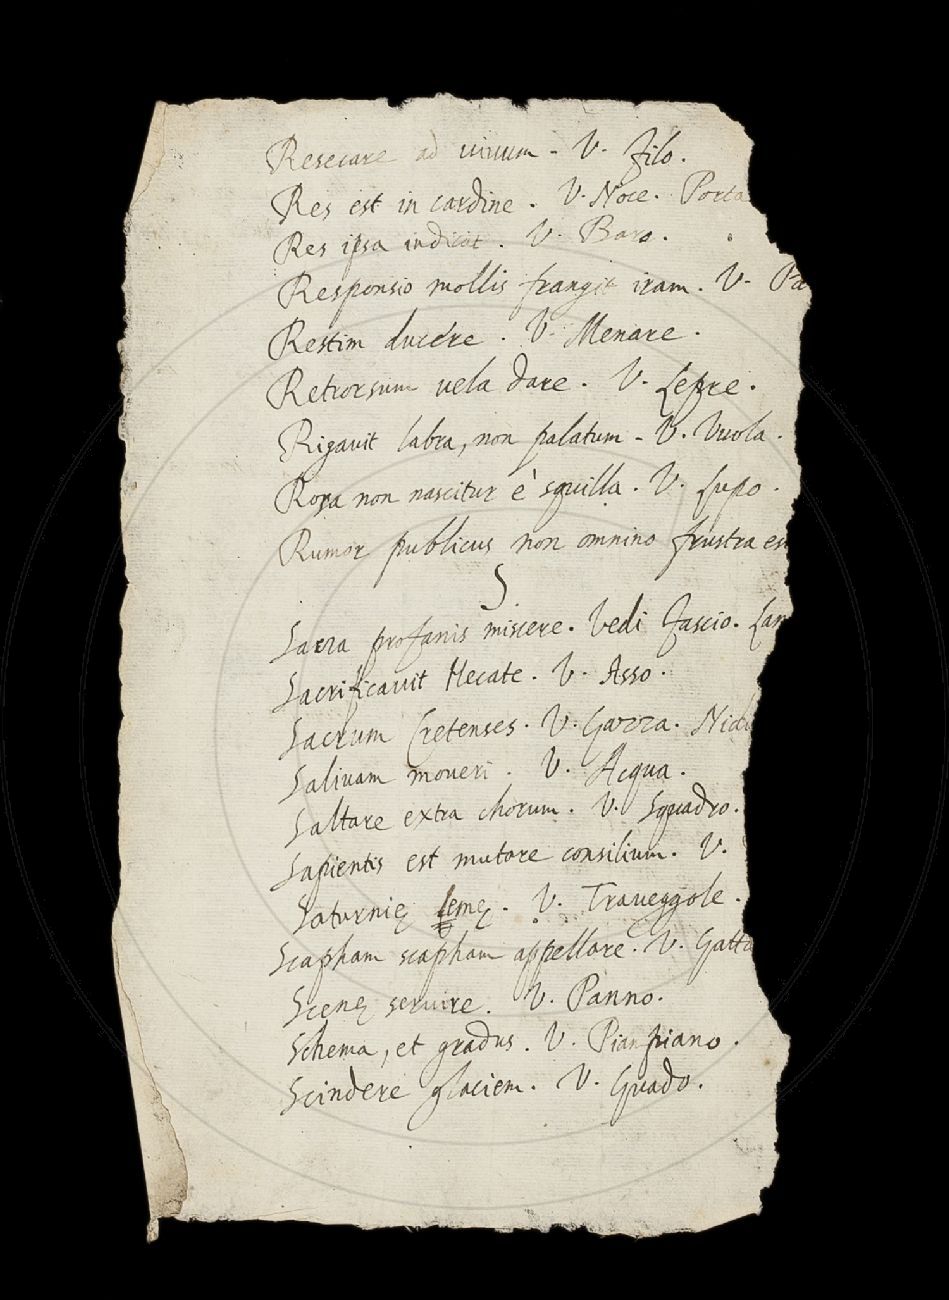 Resecare ad uiuum - V. Filo.
Res est in cardine. V. Noce. Porta
Res ipsa indicat. V. Baro.
Responsio mollis frangit iram. V. Pa
Restim ducere. V. Menare.
Retrorsum uela dare. V. Lepre.
Rigauit labra, non palatum - V. Vuola.
Rosa non nascitur è squilla. V. Lupo.
Rumor publicus non omnino frustra es
S
Sacra profanis miscere. Vedi Fascio. Lan
Sacrificauit Hecate. V. Asso.
Sacrum Cretenses. V. Gazza. Nid
Saliuam moueri. V. Acqua.
Saltare extra chorum. V. Squadro.
Sapientis est mutare consilium. V.
Saturnię lemę. V. Traueggole.
Scapham scapham appellare. V. Gatta
Scenę seruire. V. Panno.
Schema, et gradus. V. Pianpiano.
Scindere glaciem. V. Guado.